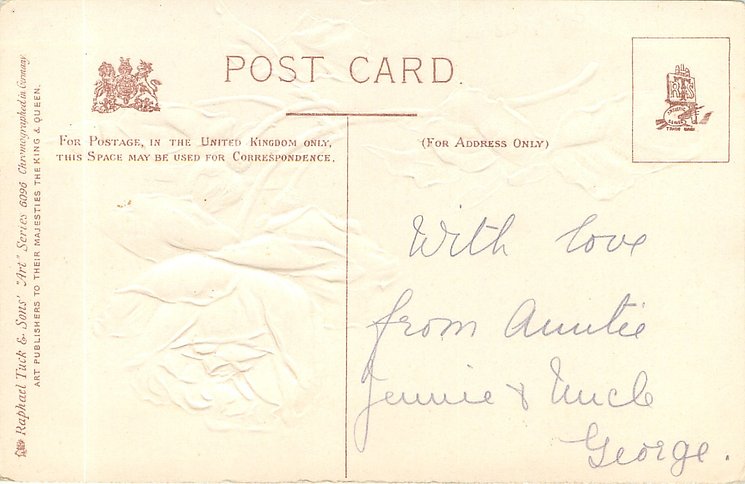 POST CARD.
FOR POSTAGE, IN THE UNITED KINGDOM ONLY,
THIS SPACE MAY BE USED FOR CORRESPONDENCE.
(FOR ADDRESS ONLY)
Raphael Tuck & Sons' "Art" Series 6096 Chromographed in Germany
ART PUBLISHERS TO THEIR MAJESTIES THE KING & QUEEN.
With love
from Auntie
Jennie & Uncle
George.